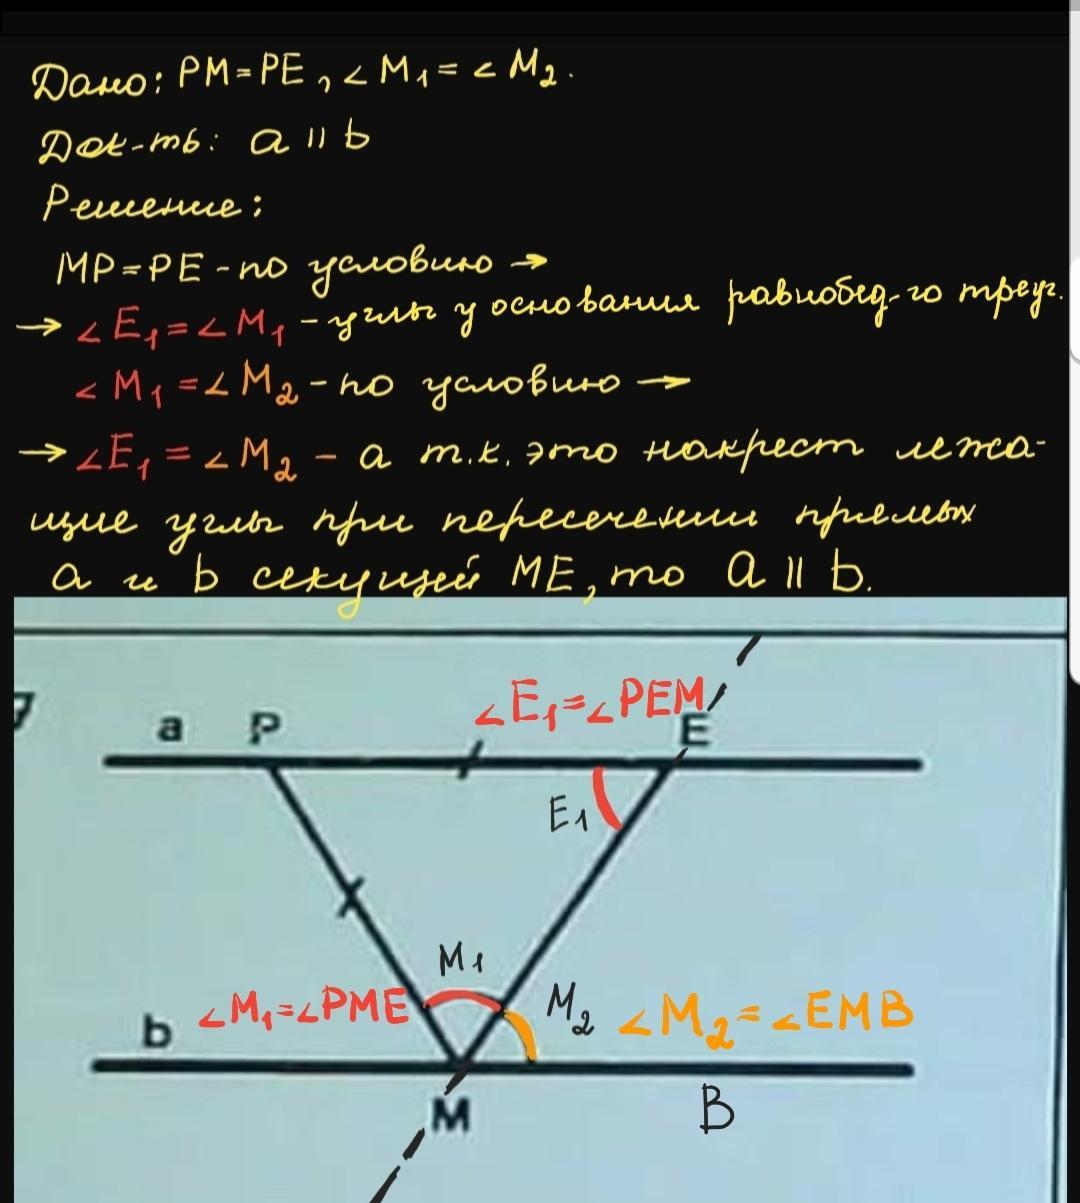 Дано: PM=PE, ∠M₁=∠M₂.
Док-ть: a || b
Решение:
MP=PE-по условию →
→ ∠E₁=∠M₁ - углы у основания равнобед-го треуг.
∠M₁=∠M₂-по условию →
→ ∠E₁=∠M₂ - а т.к. это накрест лежа-
щие углы при пересечении прямых
a и b секущей ME, то a || b.
∠E₁=∠PEM
a P E
E₁
M₁
∠M₁=∠PME M₂ ∠M₂=∠EMB
b
M B